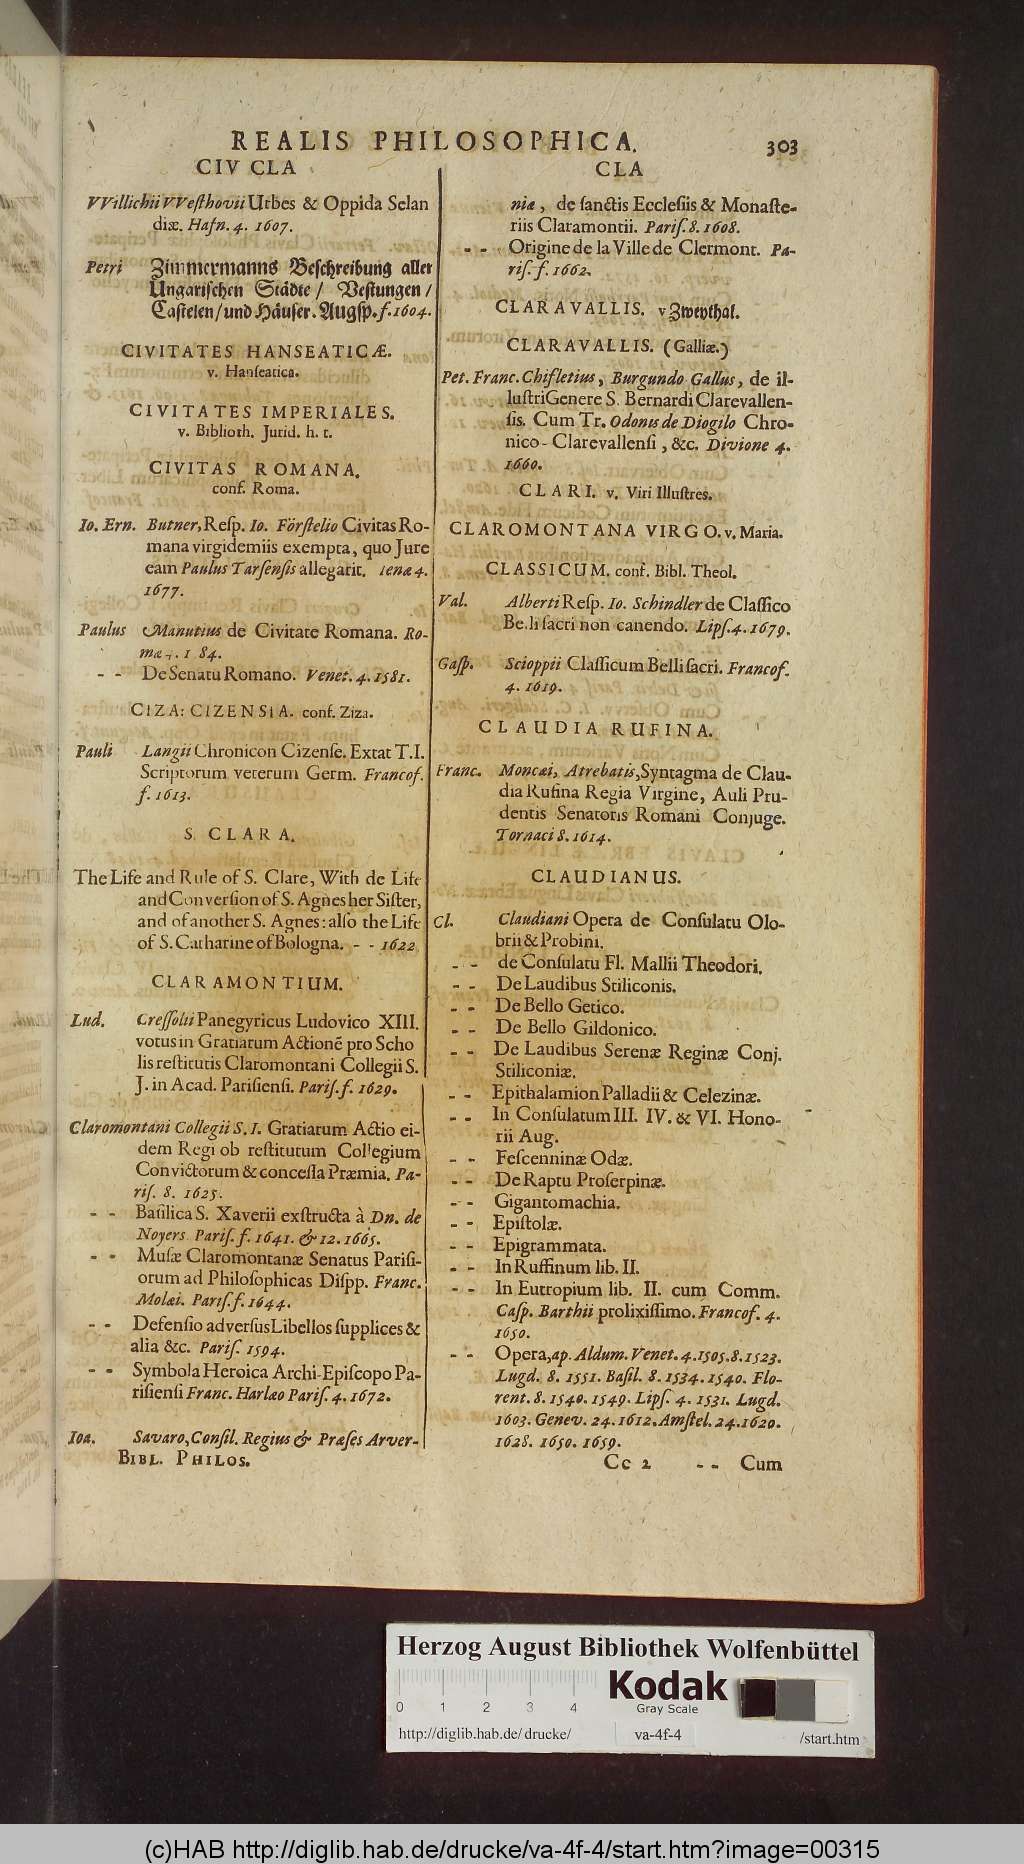 REALIS PHILOSOPHICA. 303
CIV CLA
VVillichii VVesthovii Urbes & Oppida Selan
diæ. Hafn. 4. 1607.
Petri Zimmermanns Beschreibung aller
Ungarischen Städte / Vestungen /
Castelen / und Häuser. Augsp. f. 1604.
CIVITATES HANSEATICÆ.
v. Hanseatica.
CIVITATES IMPERIALES.
v. Biblioth. Jurid. h. t.
CIVITAS ROMANA.
conf. Roma.
Io. Ern. Butner, Resp. Io. Förstelio Civitas Ro-
mana virgidemiis exempta, quo Jure
eam Paulus Tarsensis allegarit. Ienæ 4.
1677.
Paulus Manutius de Civitate Romana. Ro-
mæ 4. 1 84.
- - De Senatu Romano. Venet. 4. 1581.
CIZA: CIZENSIA. conf. Ziza.
Pauli Langii Chronicon Cizense. Extat T. I.
Scriptorum veterum Germ. Francof.
f. 1613.
S. CLARA.
The Life and Rule of S. Clare, With de Life
and Conversion of S. Agnes her Sister,
and of another S. Agnes: also the Life
of S. Catharine of Bologna. - - 1622
CLARAMONTIUM.
Lud. Cressolii Panegyricus Ludovico XIII.
votus in Gratiarum Actionē pro Scho
lis restitutis Claromontani Collegii S.
J. in Acad. Parisiensi. Paris. f. 1629.
Claromontani Collegii S. I. Gratiarum Actio ei-
dem Regi ob restitutum Collegium
Convictorum & concessa Præmia. Pa-
ris. 8. 1625.
- - Basilica S. Xaverii exstructa à Dn. de
Noyers Paris. f. 1641. & 12. 1665.
- - Musæ Claromontanæ Senatus Parisi-
orum ad Philosophicas Dispp. Franc.
Molæi. Paris. f. 1644.
- - Defensio adversus Libellos supplices &
alia &c. Paris. 1594.
- - Symbola Heroica Archi-Episcopo Pa-
risiensi Franc. Harlæo Paris. 4. 1672.
Ioa. Savaro, Consil. Regius & Præses Arver-
BIBL. PHILOS.
CLA
niæ, de sanctis Ecclesiis & Monaste-
riis Claramontii. Paris. 8. 1608.
- - Origine de la Ville de Clermont. Pa-
ris. f. 1662.
CLARAVALLIS. v Zweythal.
CLARAVALLIS. (Galliæ.)
Pet. Franc. Chifletius, Burgundo Gallus, de il-
lustri Genere S. Bernardi Clarevallen-
sis. Cum Tr. Odonis de Diogilo Chro-
nico-Clarevallensi, &c. Divione 4.
1660.
CLARI. v. Viri Illustres.
CLAROMONTANA VIRGO. v. Maria.
CLASSICUM. conf. Bibl. Theol.
Val. Alberti Resp. Io. Schindler de Classico
Belli sacri non canendo. Lips. 4. 1679.
Gasp. Scioppii Classicum Belli sacri. Francof.
4. 1619.
CLAUDIA RUFINA.
Franc. Moncæi, Atrebatis, Syntagma de Clau-
dia Rufina Regia Virgine, Auli Pru-
dentis Senatoris Romani Conjuge.
Tornaci 8. 1614.
CLAUDIANUS.
Cl. Claudiani Opera de Consulatu Olo-
brii & Probini.
- - de Consulatu Fl. Mallii Theodori.
- - De Laudibus Stiliconis.
- - De Bello Getico.
- - De Bello Gildonico.
- - De Laudibus Serenæ Reginæ Conj.
Stiliconiæ.
- - Epithalamion Palladii & Celezinæ.
- - In Consulatum III. IV. & VI. Hono-
rii Aug.
- - Fescenninæ Odæ.
- - De Raptu Proserpinæ.
- - Gigantomachia.
- - Epistolæ.
- - Epigrammata.
- - In Ruffinum lib. II.
- - In Eutropium lib. II. cum Comm.
Casp. Barthii prolixissimo. Francof. 4.
1650.
- - Opera, ap. Aldum. Venet. 4. 1505. 8. 1523.
Lugd. 8. 1551. Basil. 8. 1534. 1540. Flo-
rent. 8. 1540. 1549. Lips. 4. 1531. Lugd.
1603. Genev. 24. 1612. Amstel. 24. 1620.
1628. 1650. 1659.
Cc 2 - - Cum
Herzog August Bibliothek Wolfenbüttel
0 1 2 3 4
Kodak
Gray Scale
http://diglib.hab.de/drucke/ va-4f-4 /start.htm
(c)HAB http://diglib.hab.de/drucke/va-4f-4/start.htm?image=00315